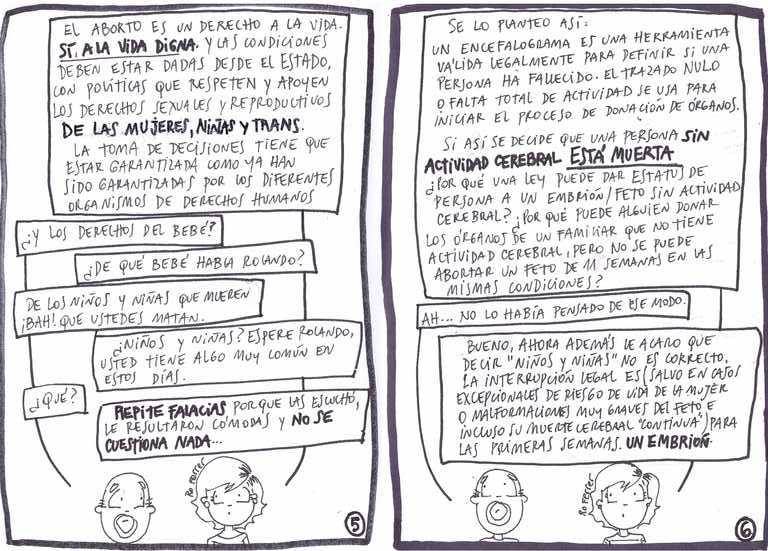 EL ABORTO ES UN DERECHO A LA VIDA.
SÍ, A LA VIDA DIGNA. Y LAS CONDICIONES
DEBEN ESTAR DADAS DESDE EL ESTADO,
CON POLÍTICAS QUE RESPETEN Y APOYEN
LOS DERECHOS SEXUALES Y REPRODUCTIVOS
DE LAS MUJERES, NIÑAS Y TRANS.
LA TOMA DE DECISIONES TIENE QUE
ESTAR GARANTIZADA COMO YA HAN
SIDO GARANTIZADAS POR LOS DIFERENTES
ORGANISMOS DE DERECHOS HUMANOS
¿Y LOS DERECHOS DEL BEBÉ?
¿DE QUÉ BEBÉ HABLA ROLANDO?
DE LOS NIÑOS Y NIÑAS QUE MUEREN
¡BAH! QUE USTEDES MATAN.
¿NIÑOS Y NIÑAS? ESPERE ROLANDO,
USTED TIENE ALGO MUY COMÚN EN
ESTOS DÍAS.
¿QUÉ?
REPITE FALACIAS PORQUE LAS ESCUCHÓ,
LE RESULTARON CÓMODAS Y NO SE
CUESTIONA NADA...
Ro Ferrer
5
SE LO PLANTEO ASÍ:
UN ENCEFALOGRAMA ES UNA HERRAMIENTA
VÁLIDA LEGALMENTE PARA DEFINIR SI UNA
PERSONA HA FALLECIDO. EL TRAZADO NULO
O FALTA TOTAL DE ACTIVIDAD SE USA PARA
INICIAR EL PROCESO DE DONACIÓN DE ÓRGANOS.
SI ASÍ SE DECIDE QUE UNA PERSONA SIN
ACTIVIDAD CEREBRAL ESTÁ MUERTA
¿POR QUÉ UNA LEY PUEDE DAR ESTATUS DE
PERSONA A UN EMBRIÓN/FETO SIN ACTIVIDAD
CEREBRAL? ¿POR QUÉ PUEDE ALGUIEN DONAR
LOS ÓRGANOS DE UN FAMILIAR QUE NO TIENE
ACTIVIDAD CEREBRAL, PERO NO SE PUEDE
ABORTAR UN FETO DE 11 SEMANAS EN LAS
MISMAS CONDICIONES?
AH... NO LO HABÍA PENSADO DE ESE MODO.
BUENO, AHORA ADEMÁS LE ACARO QUE
DECIR "NIÑOS Y NIÑAS" NO ES CORRECTO.
LA INTERRUPCIÓN LEGAL ES (SALVO EN CASOS
EXCEPCIONALES DE RIESGO DE VIDA DE LA MUJER
O MALFORMACIONES MUY GRAVES DEL FETO E
INCLUSO SU MUERTE CEREBRAL "CONTINUA") PARA
LAS PRIMERAS SEMANAS. UN EMBRIÓN.
Ro Ferrer
6